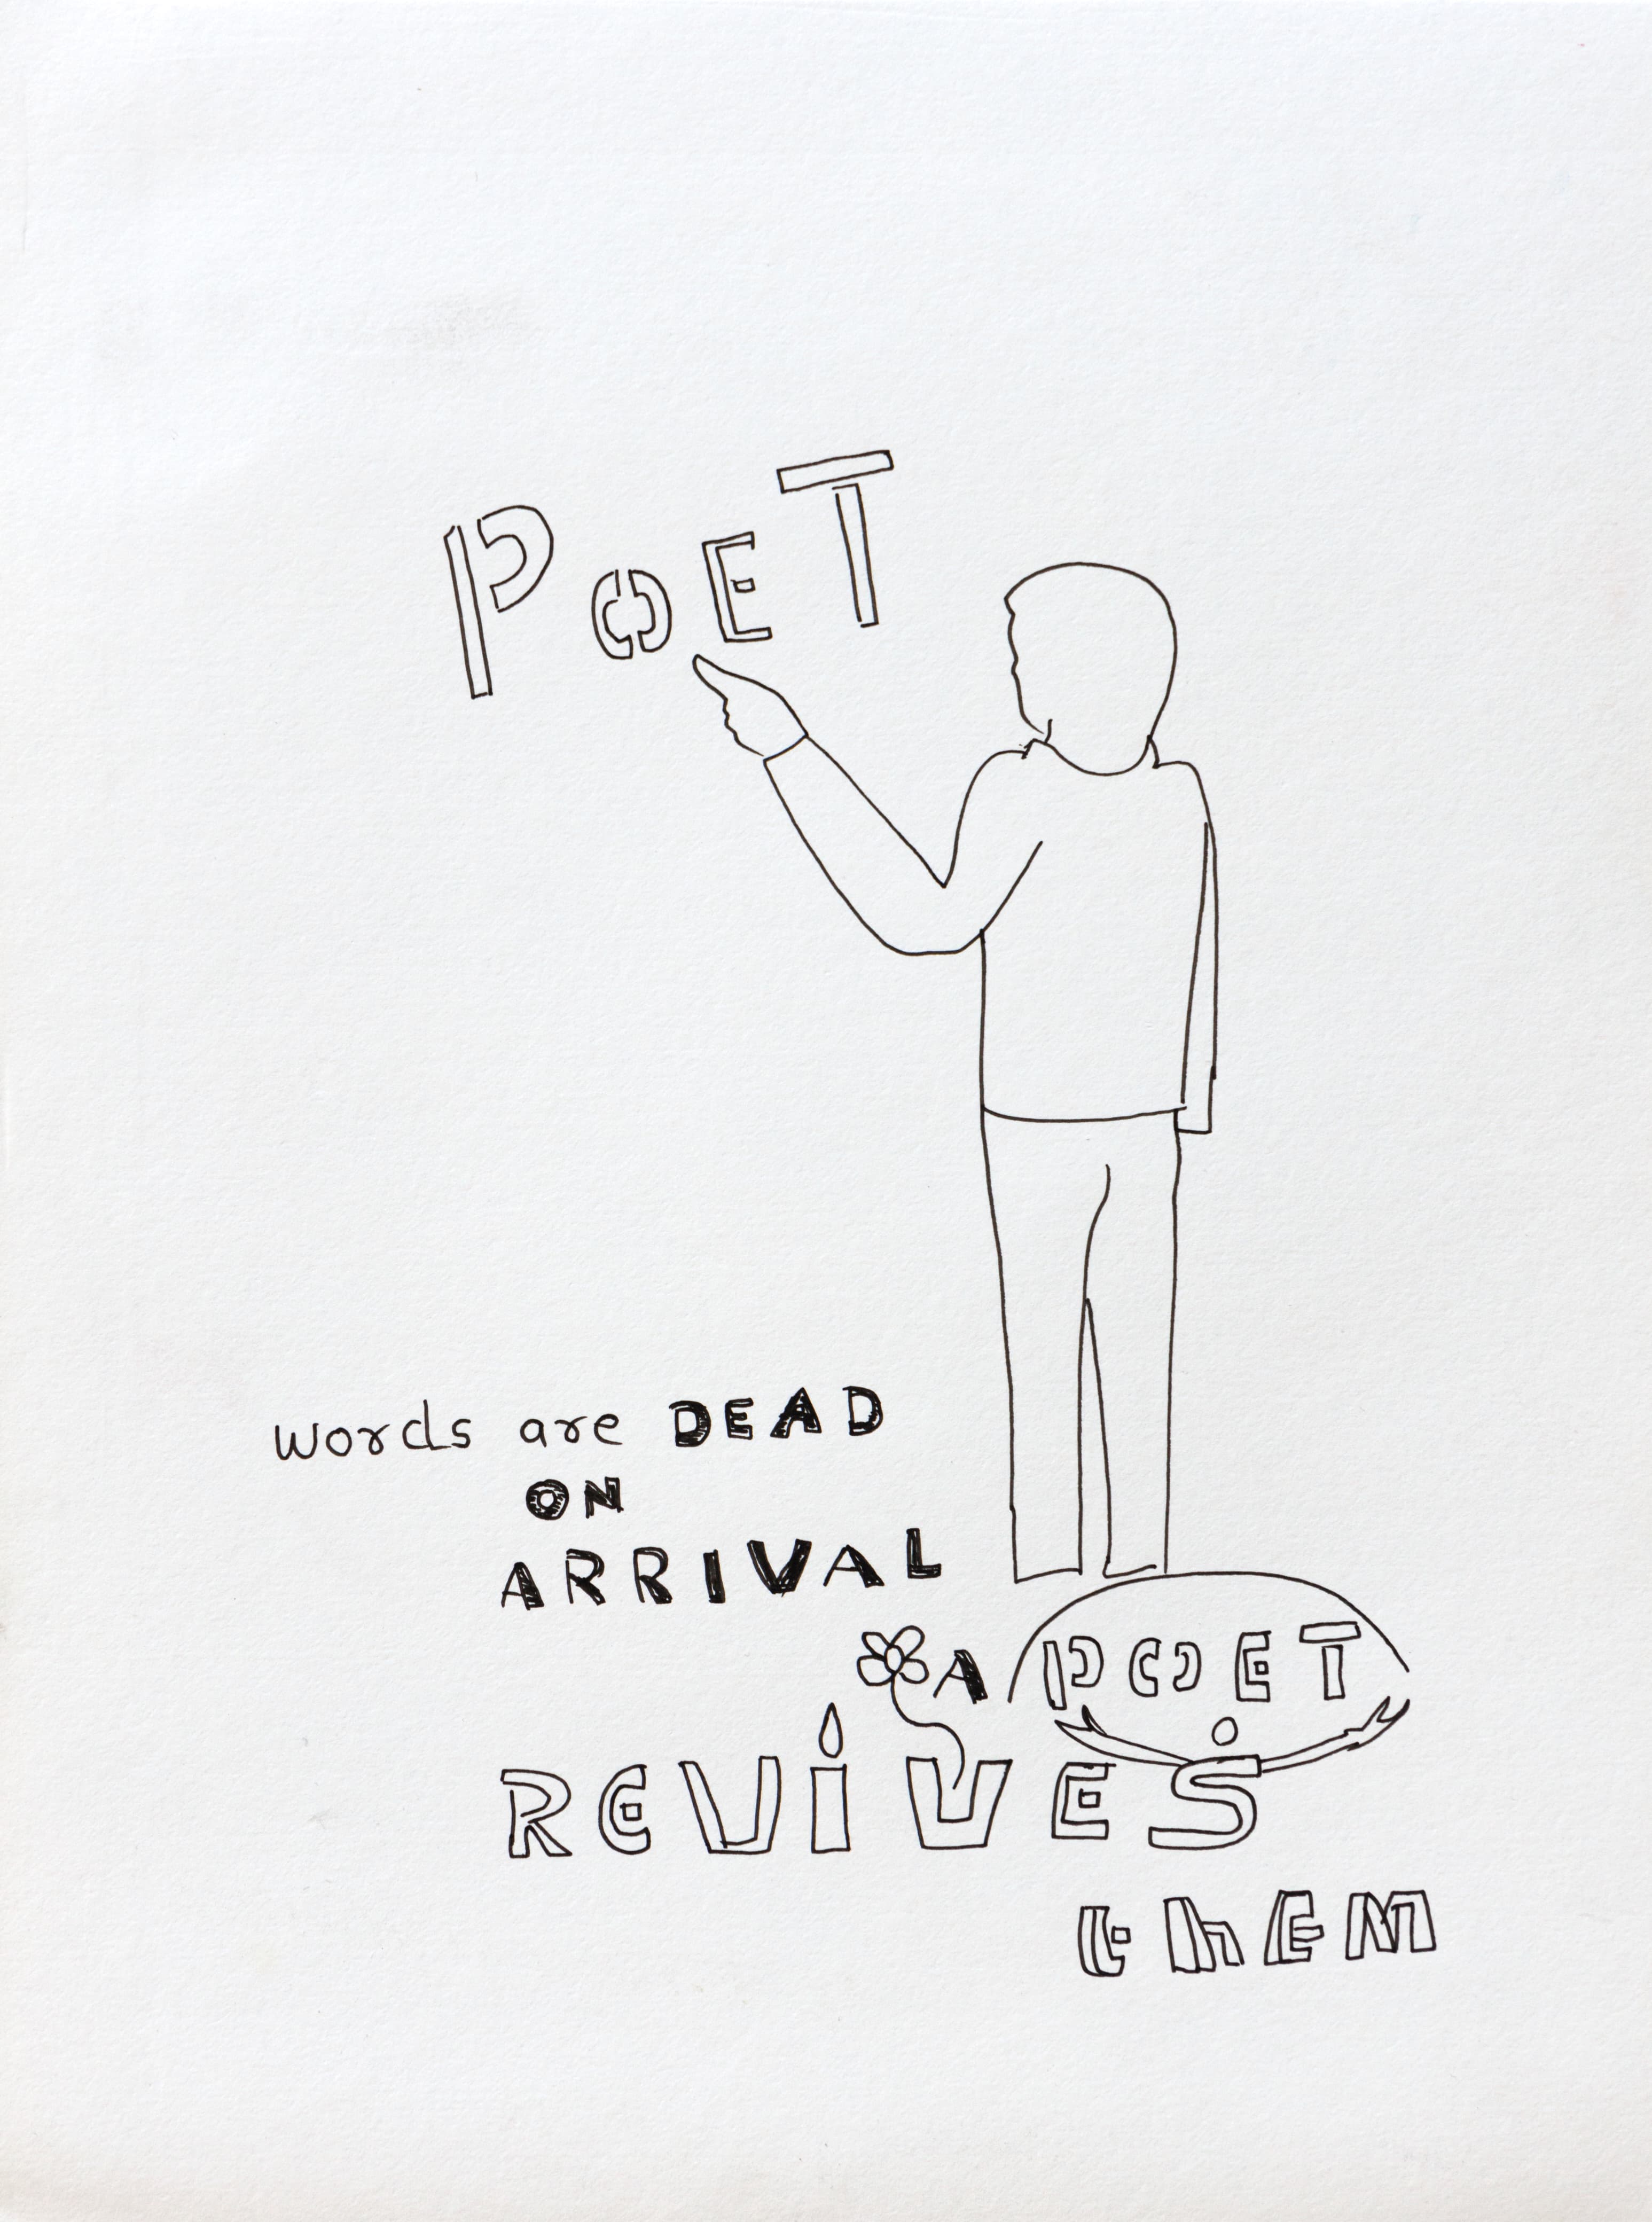 POET
words are DEAD
ON
ARRIVAL
A POET
REViVES
thEM